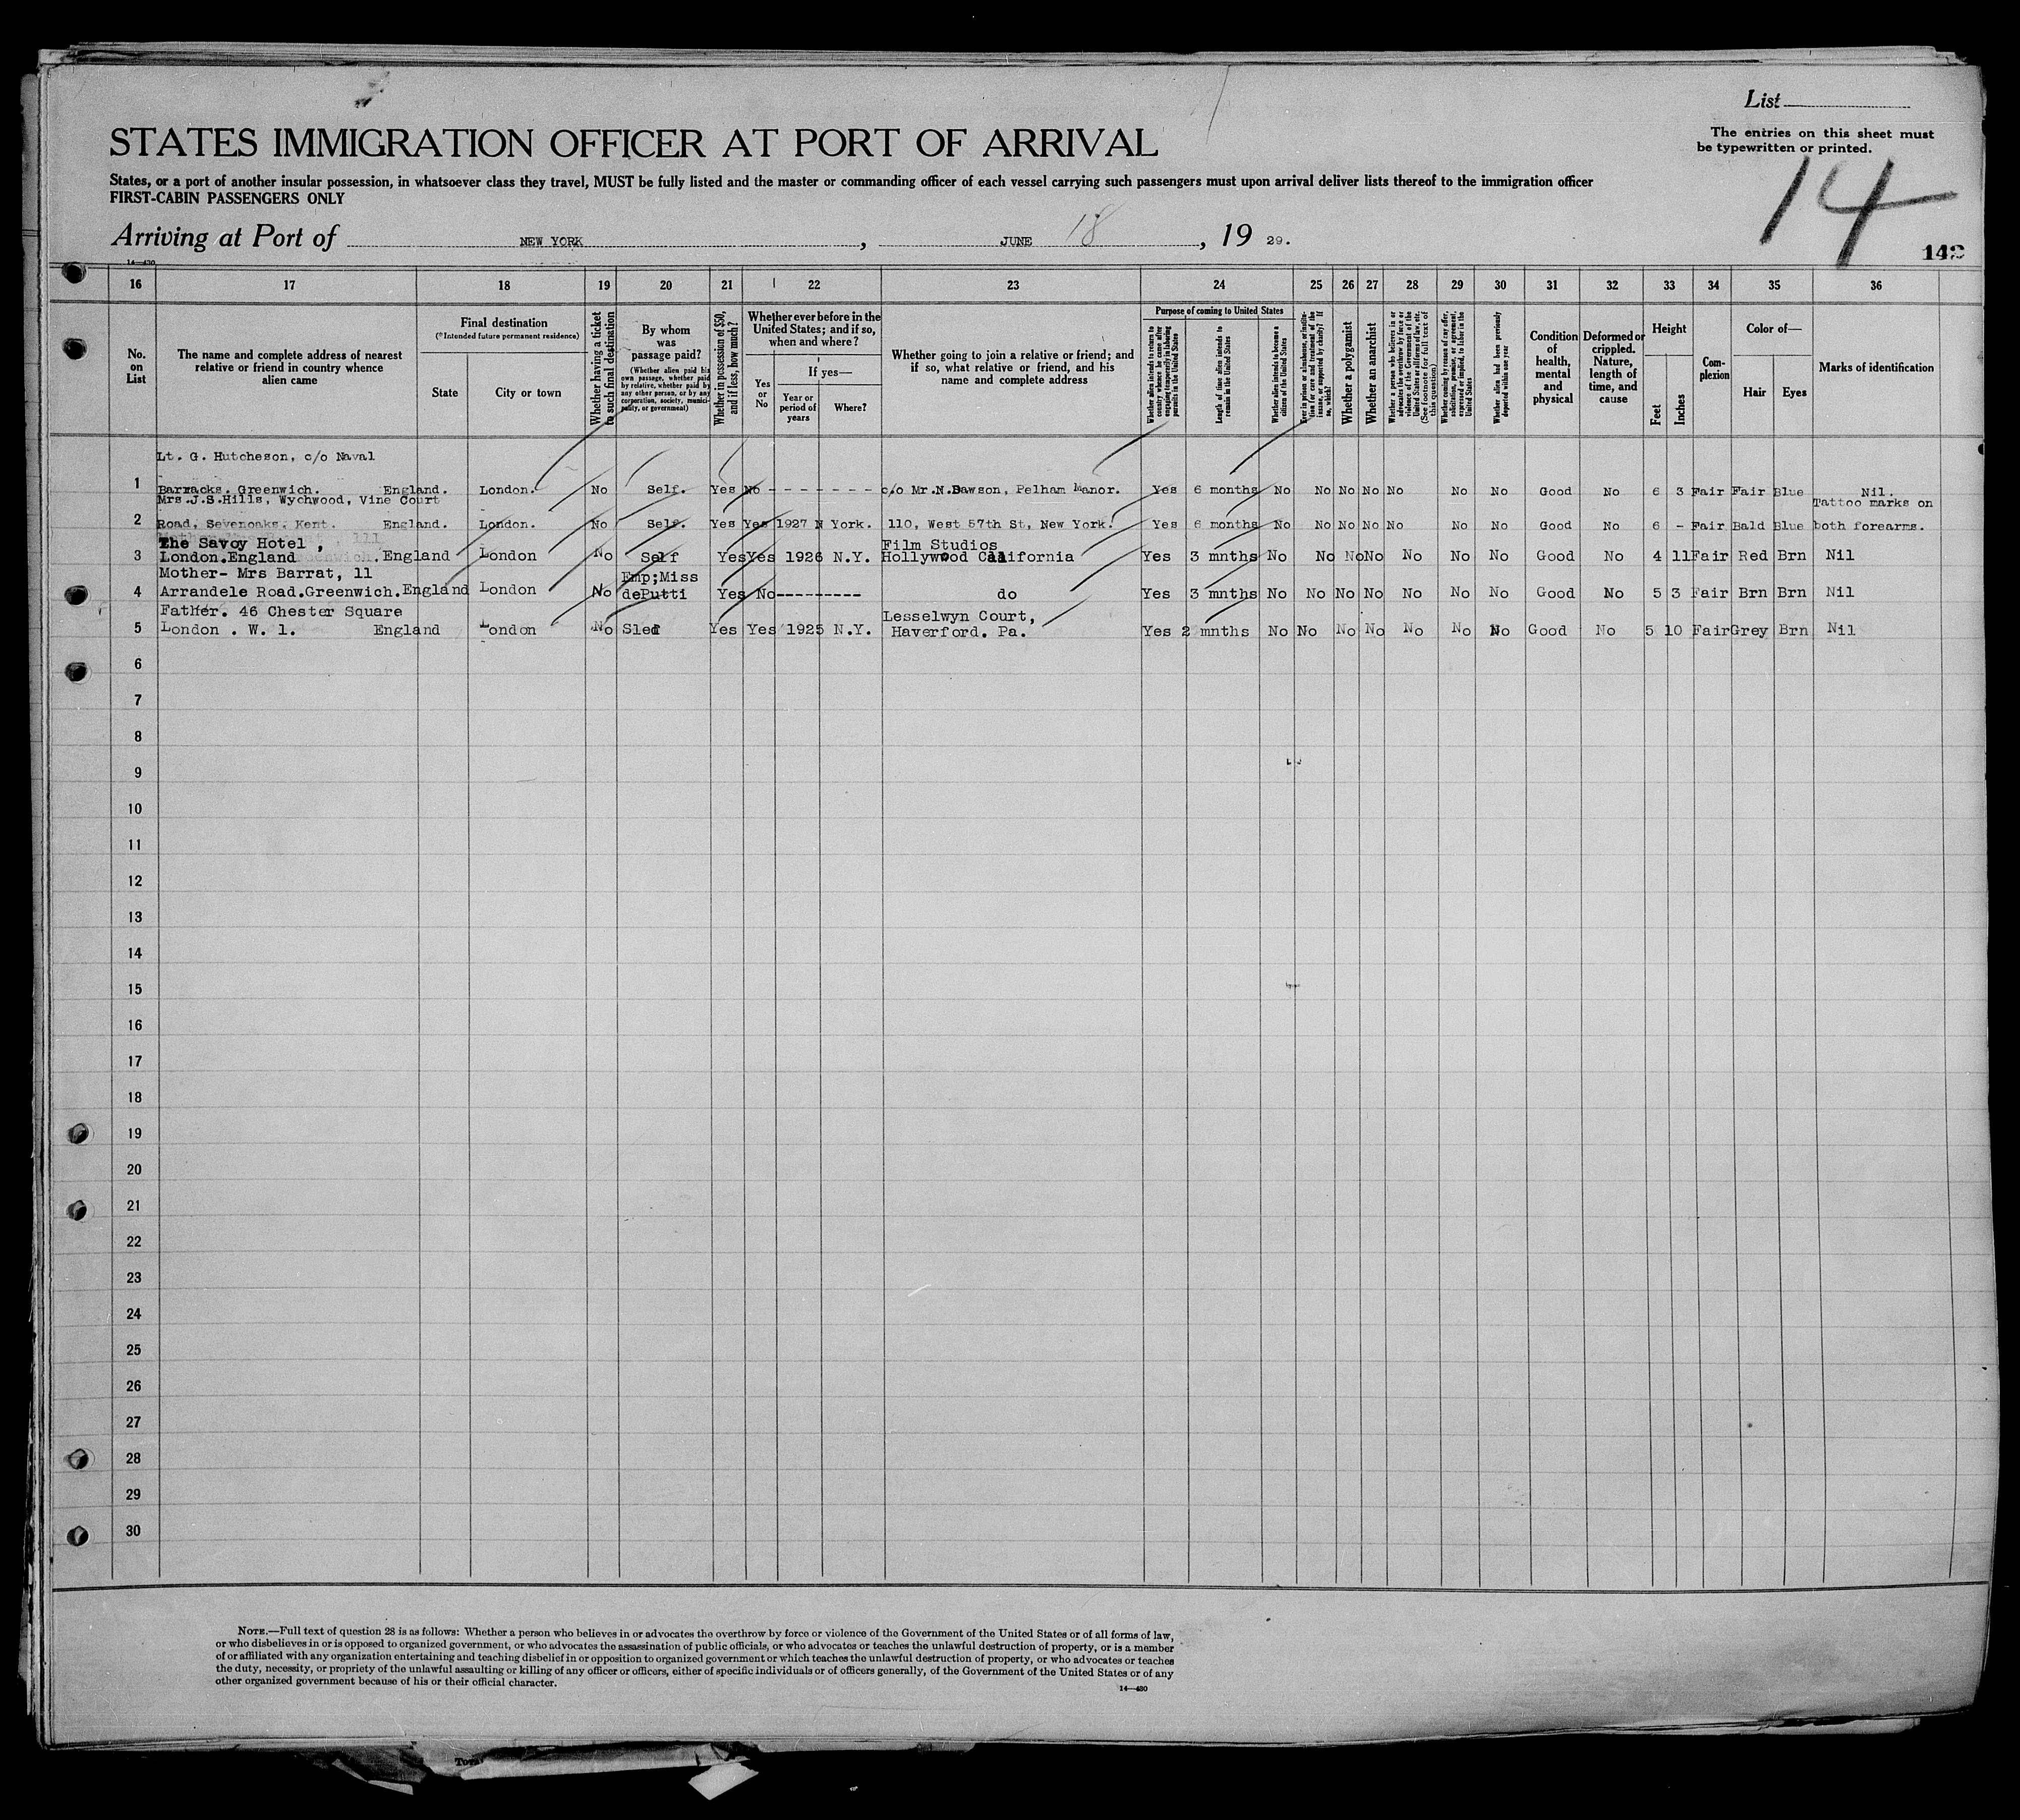 List
The entries on this sheet must
be typewritten or printed.
STATES IMMIGRATION OFFICER AT PORT OF ARRIVAL
States, or a port of another insular possession, in whatsoever class they travel, MUST be fully listed and the master or commanding officer of each vessel carrying such passengers must upon arrival deliver lists thereof to the immigration officer
FIRST-CABIN PASSENGERS ONLY
14
Arriving at Port of NEW YORK, JUNE 18, 19 29.
14—430
16 17 18 19 20 21 22 23 24 25 26 27 28 29 30 31 32 33 34 35 36
No. on List
The name and complete address of nearest relative or friend in country whence alien came
Final destination
(*Intended future permanent residence)
State
City or town
Whether having a ticket to such final destination
By whom was passage paid?
(Whether alien paid his own passage, whether paid by relative, whether paid by any other person, or by any corporation, society, municipality, or government)
Whether in possession of $50, and if less, how much?
Whether ever before in the United States; and if so, when and where?
Yes or No
If yes—
Year or period of years
Where?
Whether going to join a relative or friend; and if so, what relative or friend, and his name and complete address
Purpose of coming to United States
Whether alien intends to return to country whence he came after engaging temporarily in laboring pursuits in the United States
Length of time alien intends to remain in the United States
Whether alien intends to become a citizen of the United States
Ever in prison or almshouse, or institution for care and treatment of the insane, or supported by charity? If so, which?
Whether a polygamist
Whether an anarchist
Whether a person who believes in or advocates the overthrow by force or violence of the Government of the United States or all forms of law, etc. (See footnote for full text of this question)
Whether coming by reason of any offer, solicitation, promise, or agreement, expressed or implied, to labor in the United States
Whether alien had been previously deported within one year
Condition of health, mental and physical
Deformed or crippled. Nature, length of time, and cause
Height
Feet
Inches
Complexion
Color of—
Hair
Eyes
Marks of identification
Lt. G. Hutcheson, c/o Naval
1 Barracks. Greenwich. England. London. No Self. Yes No - - - - - - - c/o Mr.N.Dawson, Pelham Manor. Yes 6 months No No No No No No No Good No 6 3 Fair Fair Blue Nil.
Mrs.J.S.Hills, Wychwood, Vine Court Tattoo marks on
2 Road, Sevenoaks. Kent. England. London. No Self. Yes Yes 1927 N York. 110, West 57th St, New York. Yes 6 months No No No No No No No Good No 6 - Fair Bald Blue both forearms.
The Savoy Hotel , Film Studios
3 London.England England London No Self Yes Yes 1926 N.Y. Hollywood California Yes 3 mnths No No No No No No No Good No 4 11 Fair Red Brn Nil
Mother- Mrs Barrat, 11 Emp;Miss
4 Arrandele Road.Greenwich.England London No dePutti Yes No--------- do Yes 3 mnths No No No No No No No Good No 5 3 Fair Brn Brn Nil
Father. 46 Chester Square Lesselwyn Court,
5 London . W. 1. England London No Slef Yes Yes 1925 N.Y. Haverford. Pa. Yes 2 mnths No No No No No No No Good No 5 10 Fair Grey Brn Nil
6
7
8
9
10
11
12
13
14
15
16
17
18
19
20
21
22
23
24
25
26
27
28
29
30
NOTE.—Full text of question 28 is as follows: Whether a person who believes in or advocates the overthrow by force or violence of the Government of the United States or of all forms of law,
or who disbelieves in or is opposed to organized government, or who advocates the assassination of public officials, or who advocates or teaches the unlawful destruction of property, or is a member
of or affiliated with any organization entertaining and teaching disbelief in or opposition to organized government or which teaches the unlawful destruction of property, or who advocates or teaches
the duty, necessity, or propriety of the unlawful assaulting or killing of any officer or officers, either of specific individuals or of officers generally, of the Government of the United States or of any
other organized government because of his or their official character.
14—430